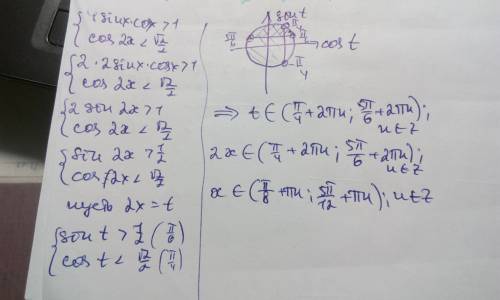 {4 sin x · cos x > 1
cos 2x < √2/2
{2 · 2 sin x · cos x > 1
cos 2x < √2/2
{2 sin 2x > 1
cos 2x < √2/2
{sin 2x > 1/2
cos 2x < √2/2
пусть 2x = t
{sin t > 1/2 (π/6)
cos t < √2/2 (π/4)
sin t
5π/6
π/4
π/6
cos t
-π/4
⇒ t ∈ (π/4 + 2πn ; 5π/6 + 2πn) ;
n ∈ Z
2x ∈ (π/4 + 2πn ; 5π/6 + 2πn) ;
n ∈ Z
x ∈ (π/8 + πn ; 5π/12 + πn) ; n ∈ Z